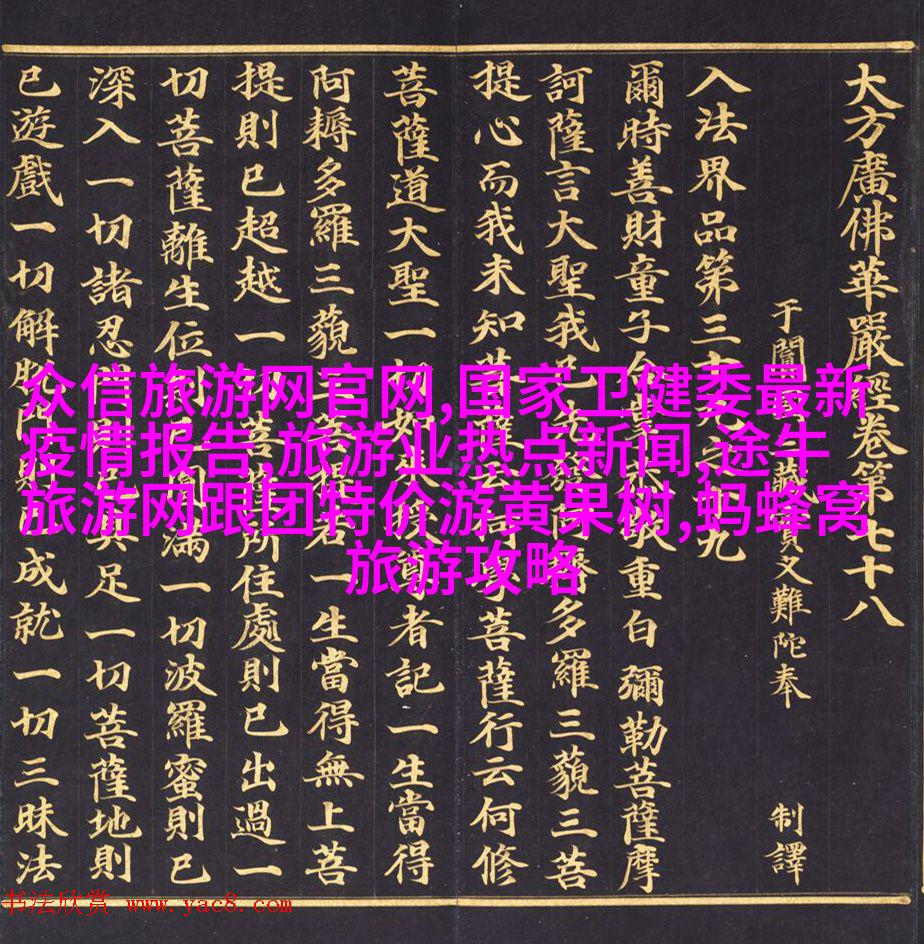 大方廣佛華嚴經卷第七十八
于闐藏實叉難陀奉 制譯
入法界品第三十九之十九
爾時善財童子合敬重白彌勒菩薩摩
訶薩言大聖我已先發阿耨多羅三藐三菩
提心而我未知菩薩云何學菩薩行云何修
菩薩道大聖一切如來授尊者記一生當得
阿耨多羅三藐三菩若一生當得無上菩
提則已超越一切菩薩所住處則已出過一
切菩薩離生位則已圓滿一切波羅蜜則已
深入一切諸忍門則已具足一切菩薩地則
已遊戲一切解脫門則已成就一切三昧法
众信旅游网官网,国家卫健委最新
疫情报告,旅游业热点新闻,途牛
旅游网跟团特价游黄果树,蚂蜂窝
旅游攻略
书法欣赏 www.yac8.com